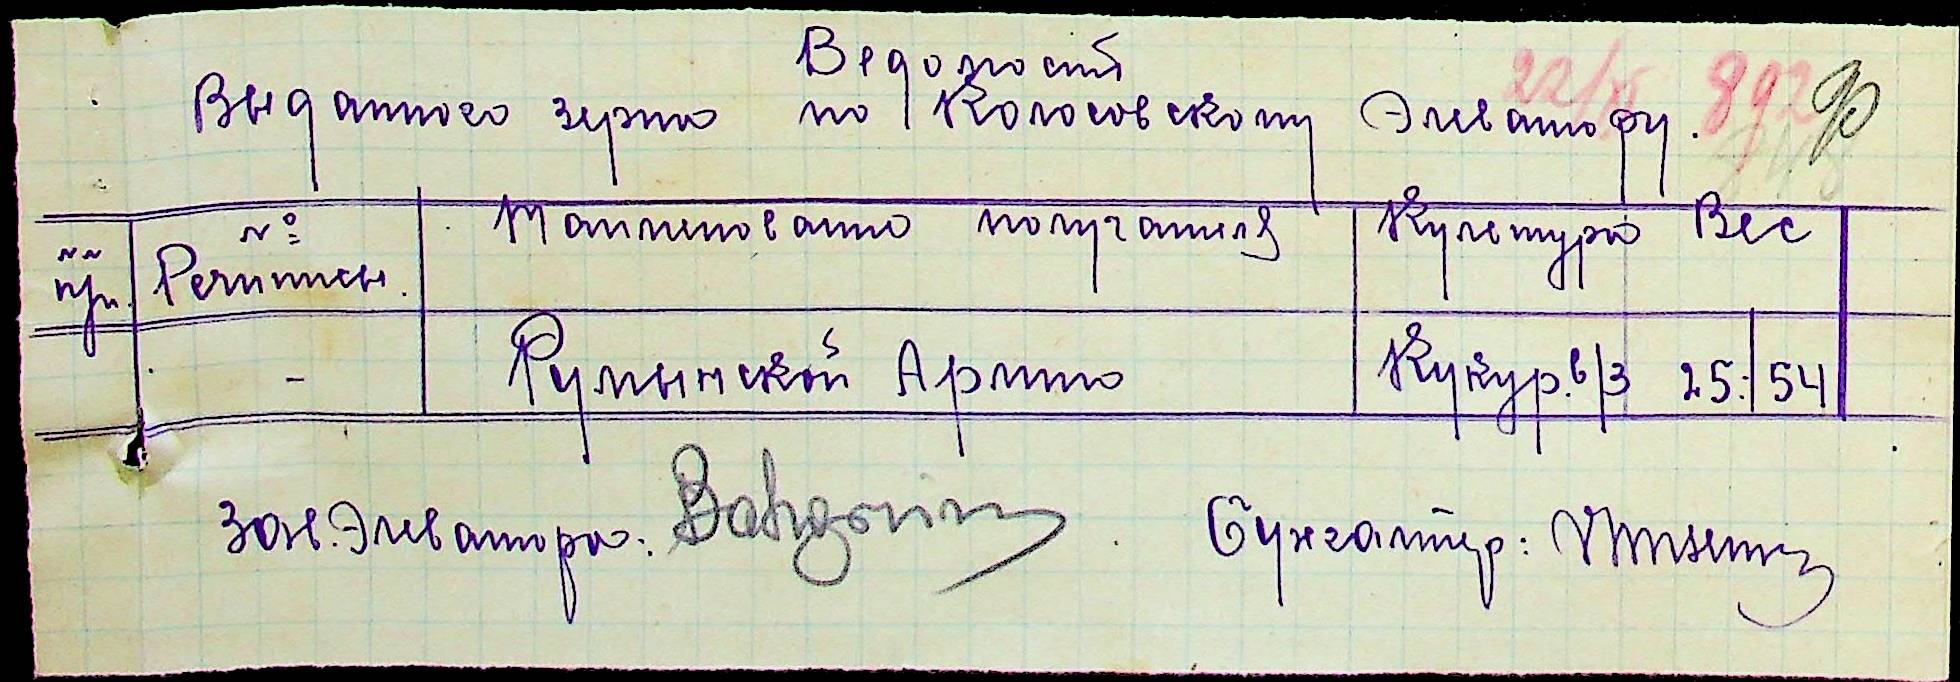 Ведомость
Выданного зерна по Колосовскому Элеватору.
22/XI 892
№№ п/п. № Расписки. Наименование получателя Культура Вес
- Румынской Армию Кукур. в/з 25.|54
Зав. Элеватора: Бухгалтер: